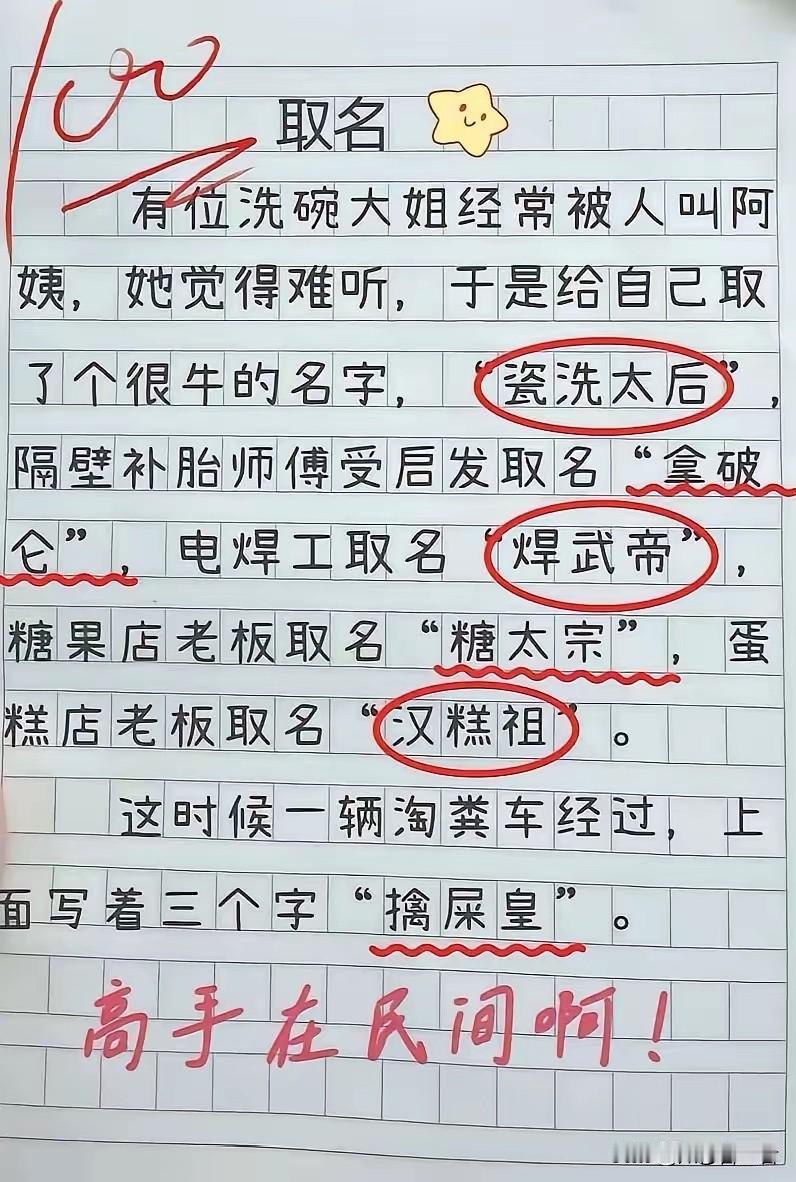 100
取名
有位洗碗大姐经常被人叫阿
姨，她觉得难听，于是给自己取
了个很牛的名字，“瓷洗太后”，
隔壁补胎师傅受启发取名“拿破
仑”，电焊工取名“焊武帝”，
糖果店老板取名“糖太宗”，蛋
糕店老板取名“汉糕祖”。
这时候一辆淘粪车经过，上
面写着三个字“擒屎皇”。
高手在民间啊！